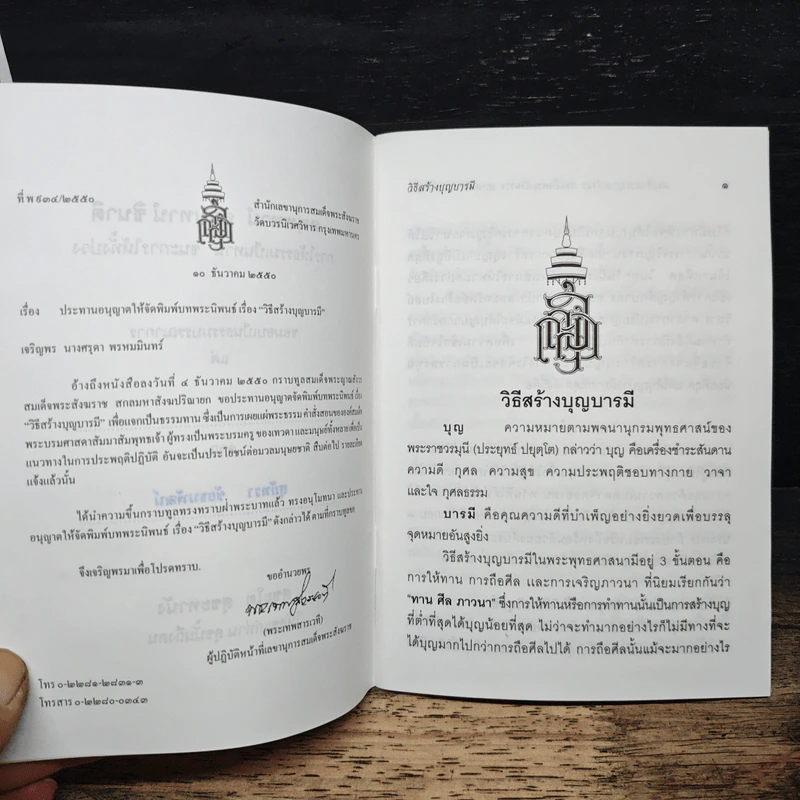 ที่ พ ๑๓๔/๒๕๕๐
สำนักเลขานุการสมเด็จพระสังฆราช
วัดบวรนิเวศวิหาร กรุงเทพมหานคร
๑๐ ธันวาคม ๒๕๕๐
เรื่อง ประทานอนุญาตให้จัดพิมพ์บทพระนิพนธ์ เรื่อง "วิธีสร้างบุญบารมี"
เจริญพร นางศรุดา พรหมมินทร์
อ้างถึงหนังสือลงวันที่ ๔ ธันวาคม ๒๕๕๐ กราบทูลสมเด็จพระญาณสังวร
สมเด็จพระสังฆราช สกลมหาสังฆปริณายก ขอประทานอนุญาตจัดพิมพ์บทพระนิพนธ์ เรื่อง
"วิธีสร้างบุญบารมี" เพื่อแจกเป็นธรรมทาน ซึ่งเป็นการเผยแผ่พระธรรม คำสั่งสอนขององค์สมเด็จ
พระบรมศาสดาสัมมาสัมพุทธเจ้า ผู้ทรงเป็นพระบรมครู ของเทวดาและมนุษย์ทั้งหลาย เพื่อเป็น
แนวทางในการประพฤติปฏิบัติ อันจะเป็นประโยชน์ต่อมวลมนุษยชาติ สืบต่อไป รายละเอียด
แจ้งแล้วนั้น
ได้นำความขึ้นกราบทูลทรงทราบฝ่าพระบาทแล้ว ทรงอนุโมทนา และประทาน
อนุญาตให้จัดพิมพ์บทพระนิพนธ์ เรื่อง "วิธีสร้างบุญบารมี" ดังกล่าวได้ ตามที่กราบทูลขอ
จึงเจริญพรมาเพื่อโปรดทราบ.
ขออำนวยพร
(พระเทพสารเวที)
ผู้ปฏิบัติหน้าที่เลขานุการสมเด็จพระสังฆราช
โทร ๐-๒๒๘๑-๒๘๓๑-๓
โทรสาร ๐-๒๒๘๐-๐๓๔๓
วิธีสร้างบุญบารมี ๑
วิธีสร้างบุญบารมี
บุญ ความหมายตามพจนานุกรมพุทธศาสน์ของ
พระราชวรมุนี (ประยุทธ์ ปยุตฺโต) กล่าวว่า บุญ คือเครื่องชำระสันดาน
ความดี กุศล ความสุข ความประพฤติชอบทางกาย วาจา
และใจ กุศลธรรม
บารมี คือคุณความดีที่บำเพ็ญอย่างยิ่งยวดเพื่อบรรลุ
จุดหมายอันสูงยิ่ง
วิธีสร้างบุญบารมีในพระพุทธศาสนามีอยู่ 3 ขั้นตอน คือ
การให้ทาน การถือศีล และการเจริญภาวนา ที่นิยมเรียกกันว่า
"ทาน ศีล ภาวนา" ซึ่งการให้ทานหรือการทำทานนั้นเป็นการสร้างบุญ
ที่ต่ำที่สุดได้บุญน้อยที่สุด ไม่ว่าจะทำมากอย่างไรก็ไม่มีทางที่จะ
ได้บุญมากไปกว่าการถือศีลไปได้ การถือศีลนั้นแม้จะมากอย่างไร